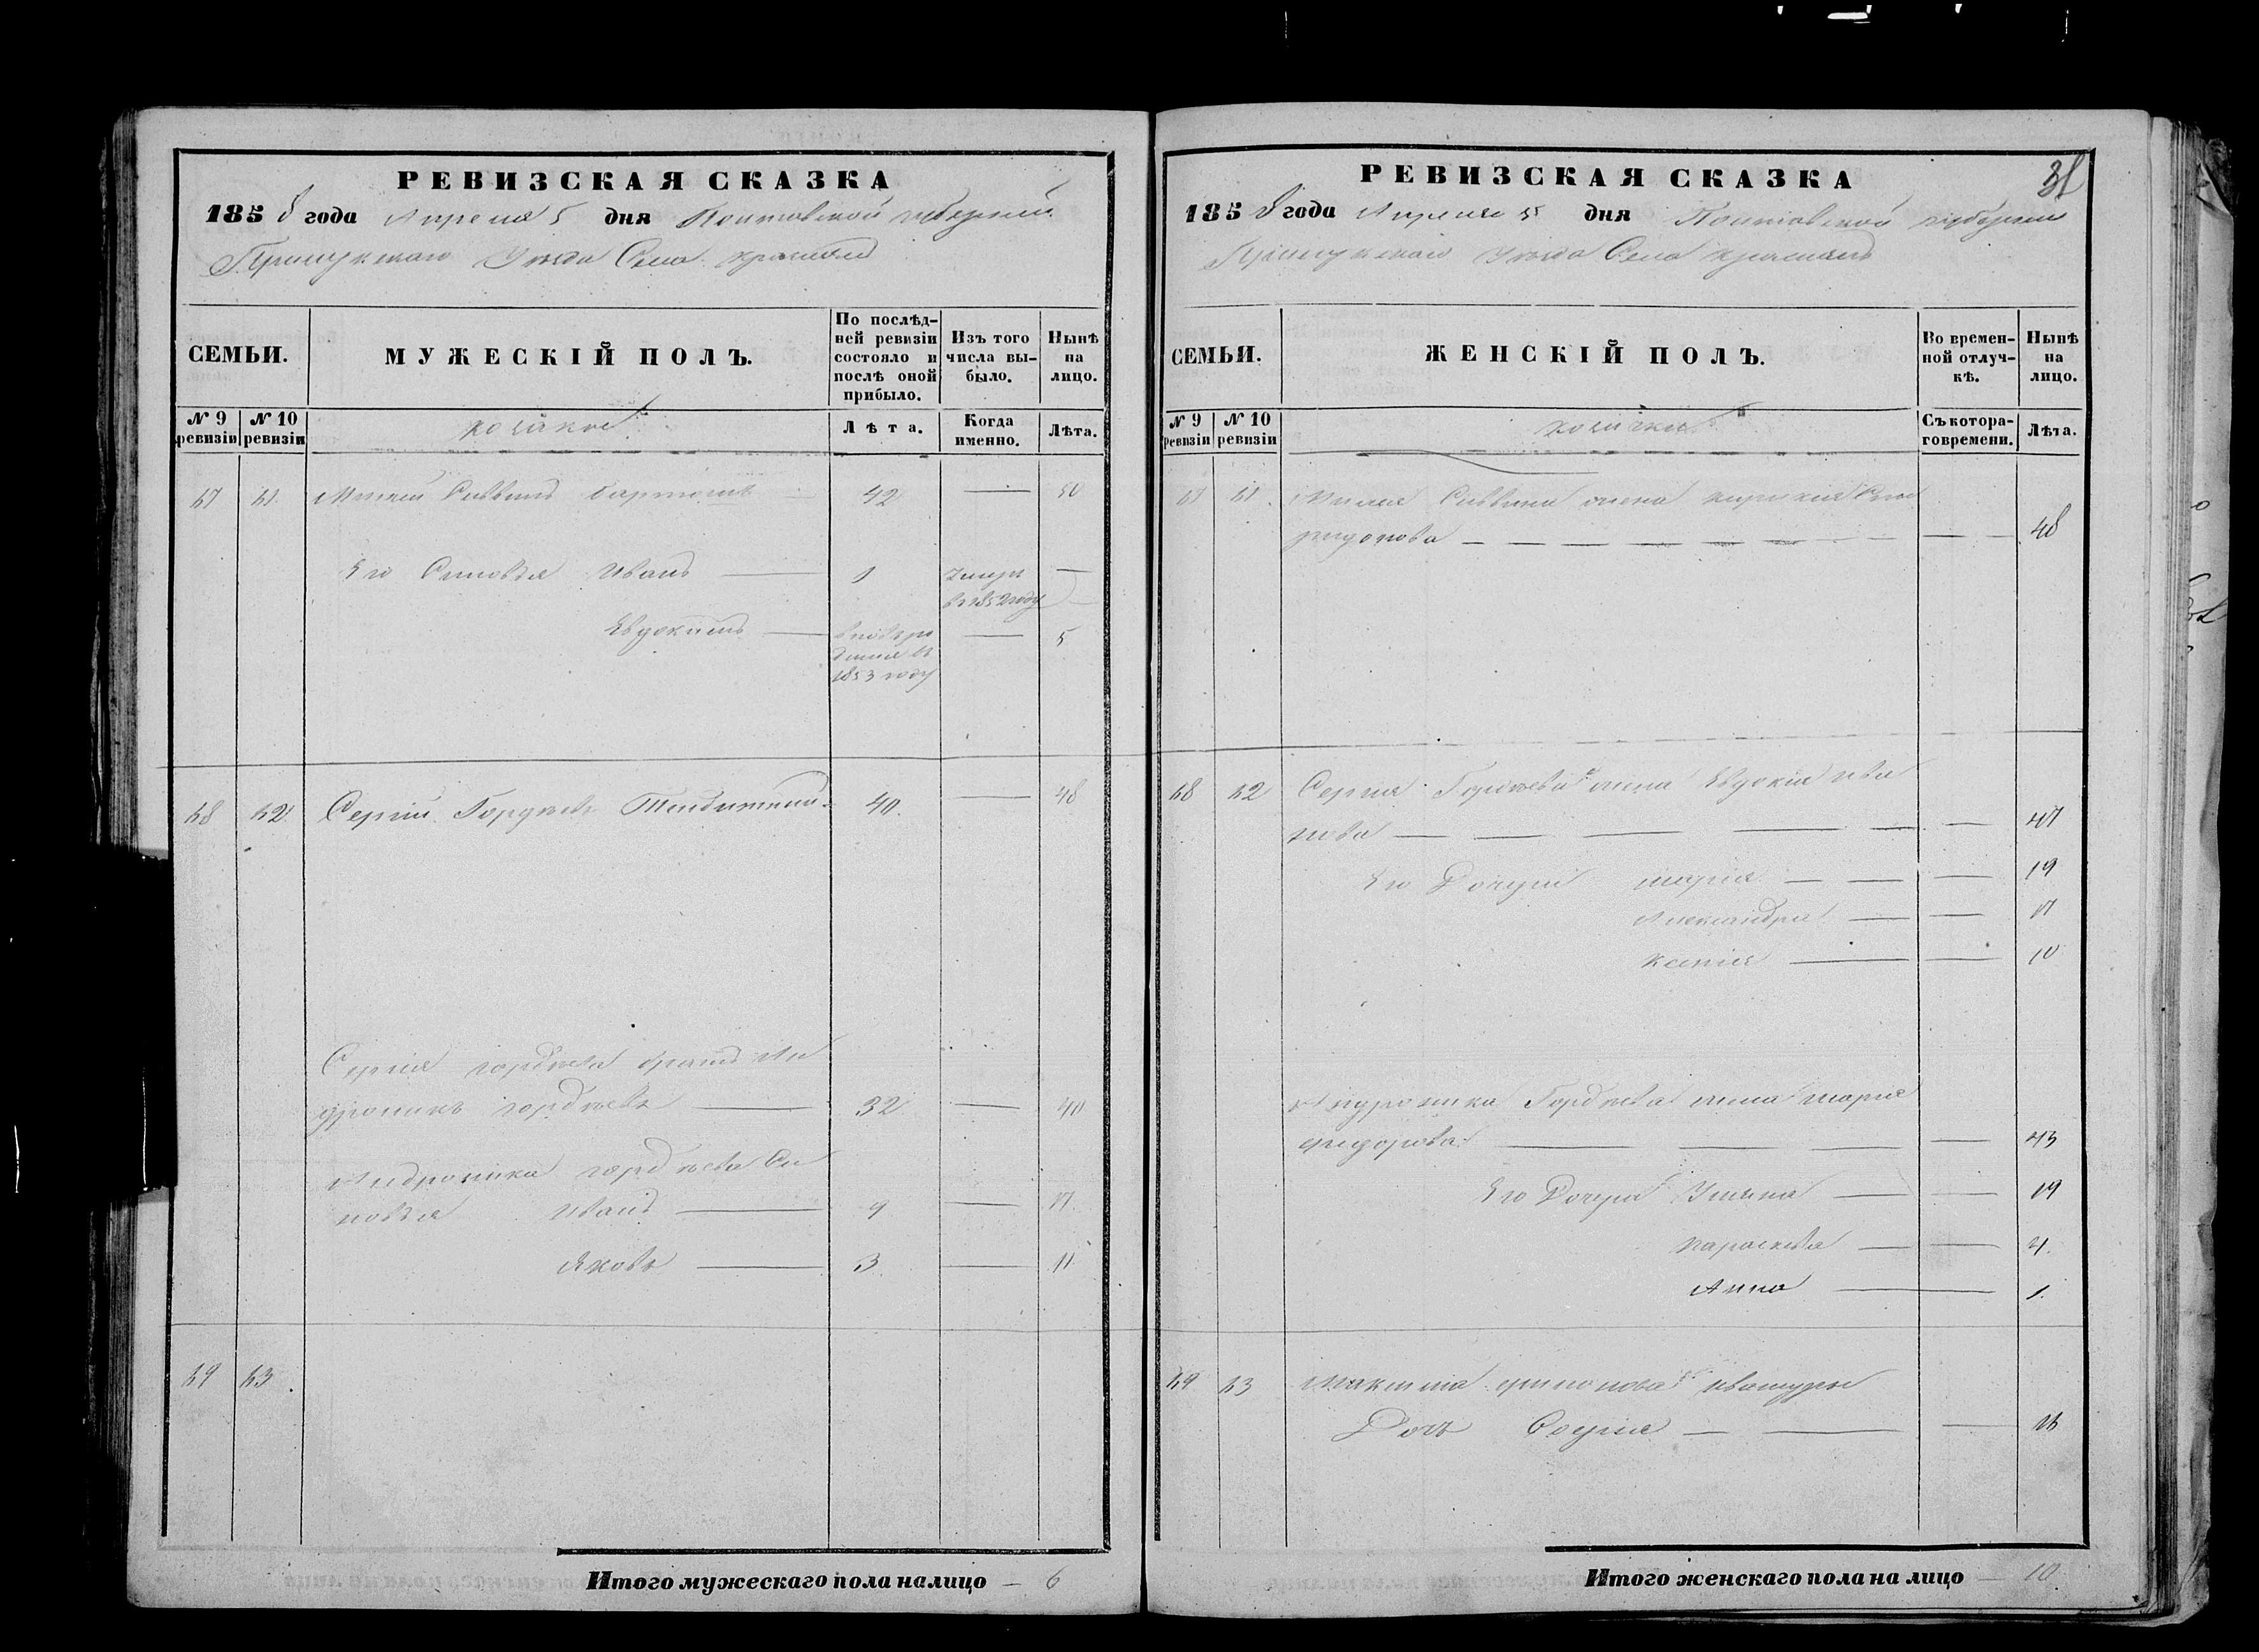 РЕВИЗСКАЯ СКАЗКА
1858 года Апреля 5 дня Полтавской губернии
Прилукского Уезда Села
СЕМЬИ.
МУЖЕСКІЙ ПОЛЪ.
По послѣд-
ней ревизіи
состояло и
послѣ оной
прибыло.
Изъ того
числа вы-
было.
Нынѣ
на
лицо.
№ 9
ревизіи
№ 10
ревизіи
Лѣта.
Когда
именно.
Лѣта.
42 50
Его Сыновья Иванъ 1 умеръ —
въ 1852 году
Евдокимъ 5
1853 году
68 62 Сергій Гордѣевъ 40 48
Сергія Гордѣева братъ Ан
дроникъ Гордѣевъ 32 40
Андроника Гордѣева Сы
новья Иванъ 9 17
Яковъ 3 11
69 63
Итого мужескаго пола налицо — 6
РЕВИЗСКАЯ СКАЗКА
1858 года Апреля 5 дня Полтавской губернии
Прилукского Уезда Села
СЕМЬИ.
ЖЕНСКІЙ ПОЛЪ.
Во времен-
ной отлуч-
кѣ.
Нынѣ
на
лицо.
№ 9
ревизіи
№ 10
ревизіи
Съ котора-
го времени.
Лѣта.
48
68 62 Сергія Гордѣева жена Евдокія Ива
нова 47
Его Дочери Марія 19
Александра 17
Ксенія 10
Андроника Гордѣева жена Марія
Федорова 43
Его Дочери Ульяна 19
Параскевія 4
Анна 1
69 63 Максима
Дочь Софія 26
Итого женскаго пола на лицо — 10